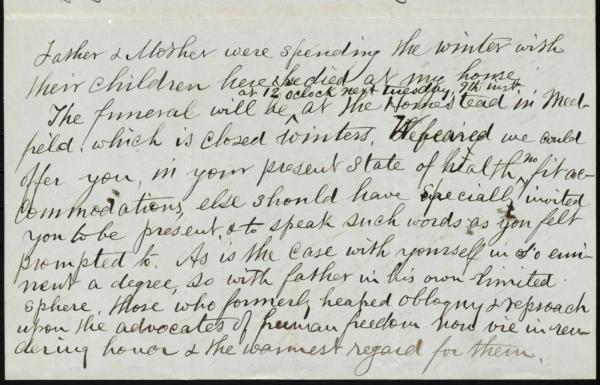 Father & Mother were spending the winter with
their children here she died at my house
at 12 oclock next tuesday, 9th inst
The funeral will be at the Homestead in Med-
field which is closed winters. We feared we could
offer you, in your present state of health no fit ac-
commodations, else should have specially invited
you to be present & to speak such words as you felt
prompted to. As is the case with yourself in so emi-
nent a degree, so with father in his own limited
sphere, those who formerly heaped obloquy & reproach
upon the advocates of human freedom now vie in ren-
dering honor & the warmest regard for them.